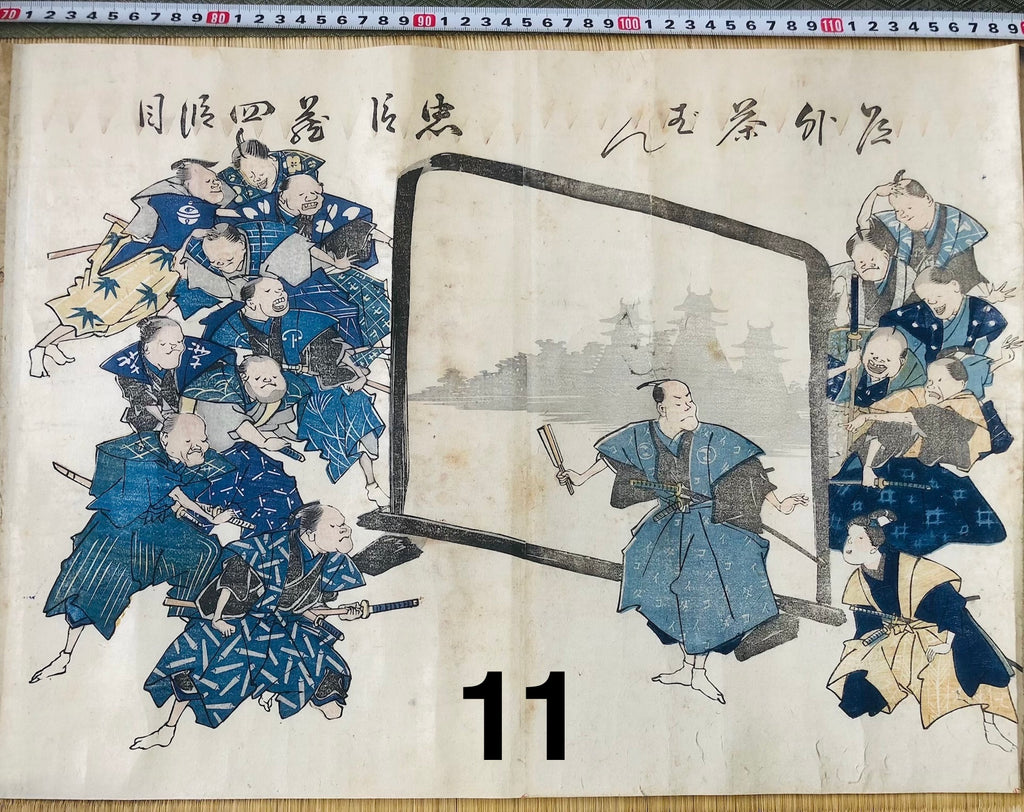 70 1 2 3 4 5 6 7 8 9 80 1 2 3 4 5 6 7 8 9 90 1 2 3 4 5 6 7 8 9 100 1 2 3 4 5 6 7 8 9 110 1 2 3 4 5 6 7 8 9
道外茶ばん
忠臣蔵四段目
11